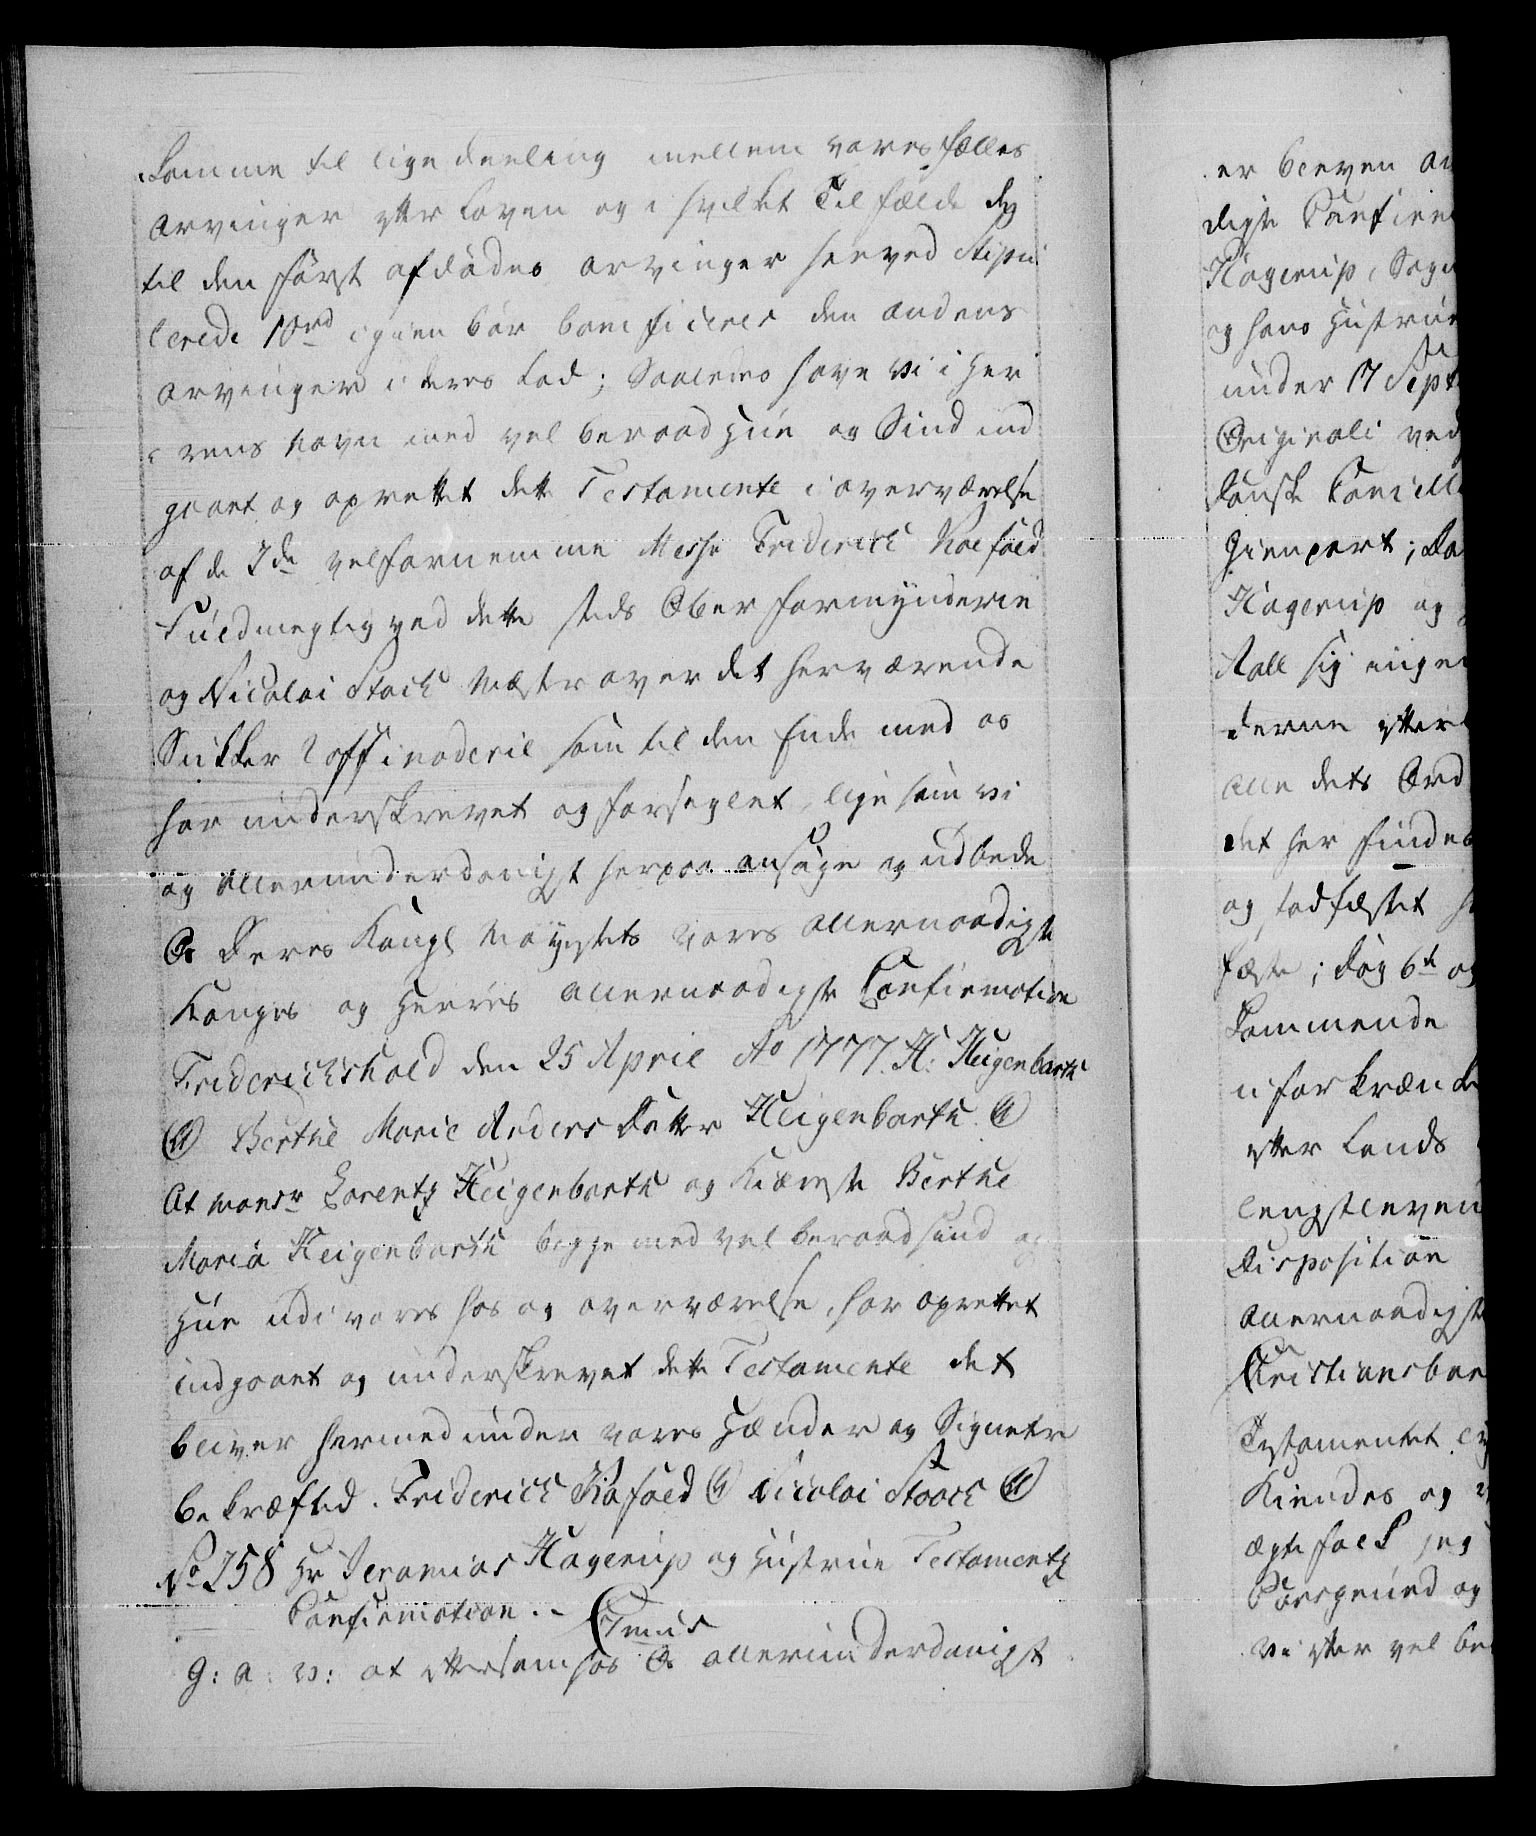 komme til lige deeling mellem vores fælles
arvinger efter Loven og i hvilket Tilfælde de
til den først afdødes arvinger herved Stipu
lerede 10 rd igien bør bonificeres den andens
arvinger i deres Lod; Saaledes have vi i Her
rens Navn med vel beraad Hue og Sind ind
gaaet og oprettet dette Testamente i overværelse
af de 2de velfornemme Messrs Friderich Roefoed
Fuldmegtig ved dette steds Ober formynderie
og Nicolai Stoch Mester over det herværende
Sukker Raffinaderie som til den Ende med os
har underskrevet og forseglet, lige som vi
og allerunderdanigst herpaa ansøge og udbede
Os Deres Kongl Mayestets vores allernaadigste
Konges og Herres allernaadigste Confirmation
Friderichshald den 25 April Ao 1777. H: Heigenbarth
(LS) Berthe Marie Anders Datter Heigenbarth (LS)
At Monsr Lorentz Heigenbarth og Kiæreste Berthe
Maria Heigenbarth begge med vel beraad sind og
Hue udi vores hos og overværelse, har oprettet
indgaaet og underskrevet dette Testamente det
bliver hermed under vores Hænder og Signeter
bekræfted. Friderich Rofoed (LS) Nicolai Stoch (LS)
No 258 Hr Jeramias Hagerup og Hustrue Testamentz
Confirmation.
G: a: v: at eftersom hos Os allerunderdanigst
er bleven an
digste Confirm
Hagerup, Sogn
og hans Hustrue
under 17 Sept
Originali ved
Danske Cancell
Gienpart; Da
Hagerup og
skall sig ingen
derne efter
alle dets Ord
det her findes
og stadfæstet
fæste; dog 6te og
kommende
uforkrænke
efter Lands
lengstleven
Disposition
allernaadigst
Christiansbor
Testamentet ly
Kiendes og
ægtefolk jeg
Porsgrund og
vi efter vel be